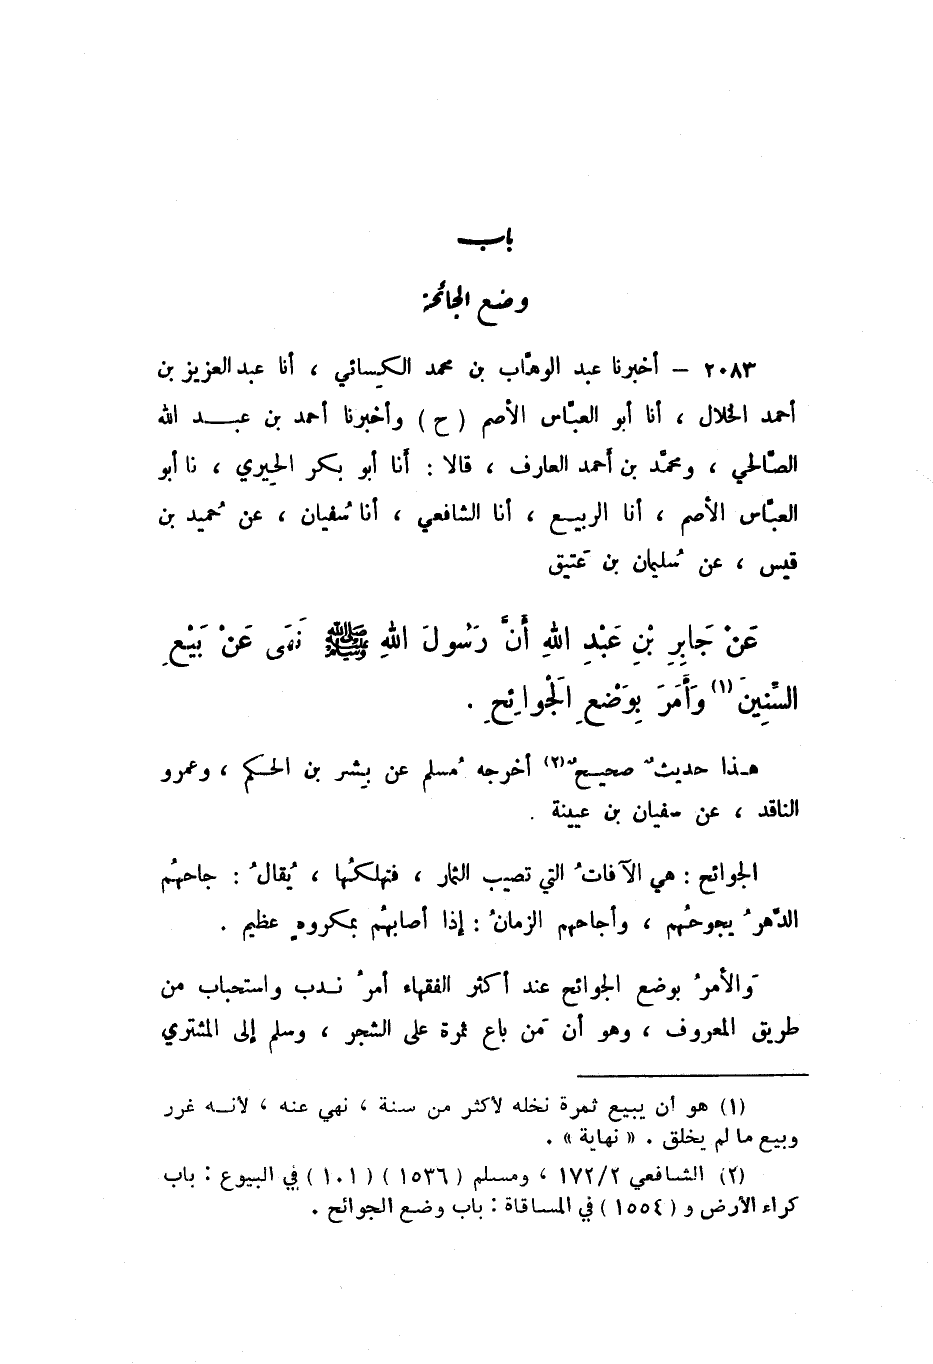 باب
وضع الجائحة
٢٠٨٣ – أخبرنا عبد الوهَّاب بن محمد الكِسائي ، أنا عبد العزيز بن
أحمد الخلال ، أنا أبو العبَّاس الأصم ( ح ) وأخبرنا أحمد بن عبد الله
الصَّالحي ، ومحمَّد بن أحمد العارف ، قالا : أَنا أبو بكر الحِيري ، نا أبو
العبَّاس الأصم ، أنا الربيع ، أنا الشافعي ، أنا سُفيان ، عن حُميد بن
قيس ، عن سُليمان بن عَتيق
عَنْ جَابِرِ بْنِ عَبْدِ اللهِ أَنَّ رَسُولَ اللهِ ﷺ نَهَى عَنْ بَيْعِ
السِّنِينَ (١) وَأَمَرَ بِوَضْعِ الْجَوَائِحِ .
هذا حديثٌ صحيحٌ (٢) أخرجه مُسلم عن بِشر بن الحكم ، وعمرو
الناقد ، عن سفيان بن عيينة .
الجوائح : هي الآفاتُ التي تصيب الثمار ، فتهلكُها ، يُقالُ : جاحهُم
الدَّهرُ يجوحُهم ، وأجاحهم الزمانُ : إذا أصابهُم بمكروهٍ عظيم .
وَالأمرُ بوضع الجوائح عند أكثر الفقهاء أمرُ ندب واستحباب من
طريق المعروف ، وهو أن مَن باع ثمرة على الشجر ، وسلم إلى المشتري
(١) هو أن يبيع ثمرة نخله لأكثر من سنة ، نهي عنه ، لأنه غرر
وبيع ما لم يخلق . « نهاية » .
(٢) الشافعي ١٧٢/٢ ، ومسلم ( ١٥٣٦ ) ( ١٠١ ) في البيوع : باب
كراء الأرض و ( ١٥٥٤ ) في المساقاة : باب وضع الجوائح .